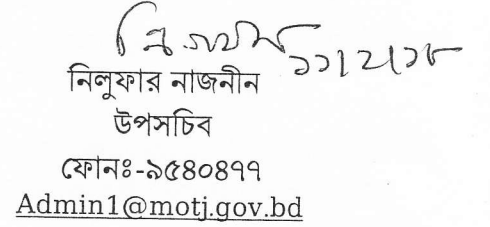 ১১।২।১৮
নিলুফার নাজনীন
উপসচিব
ফোনঃ-৯৫৪০৪৭৭
Admin1@motj.gov.bd